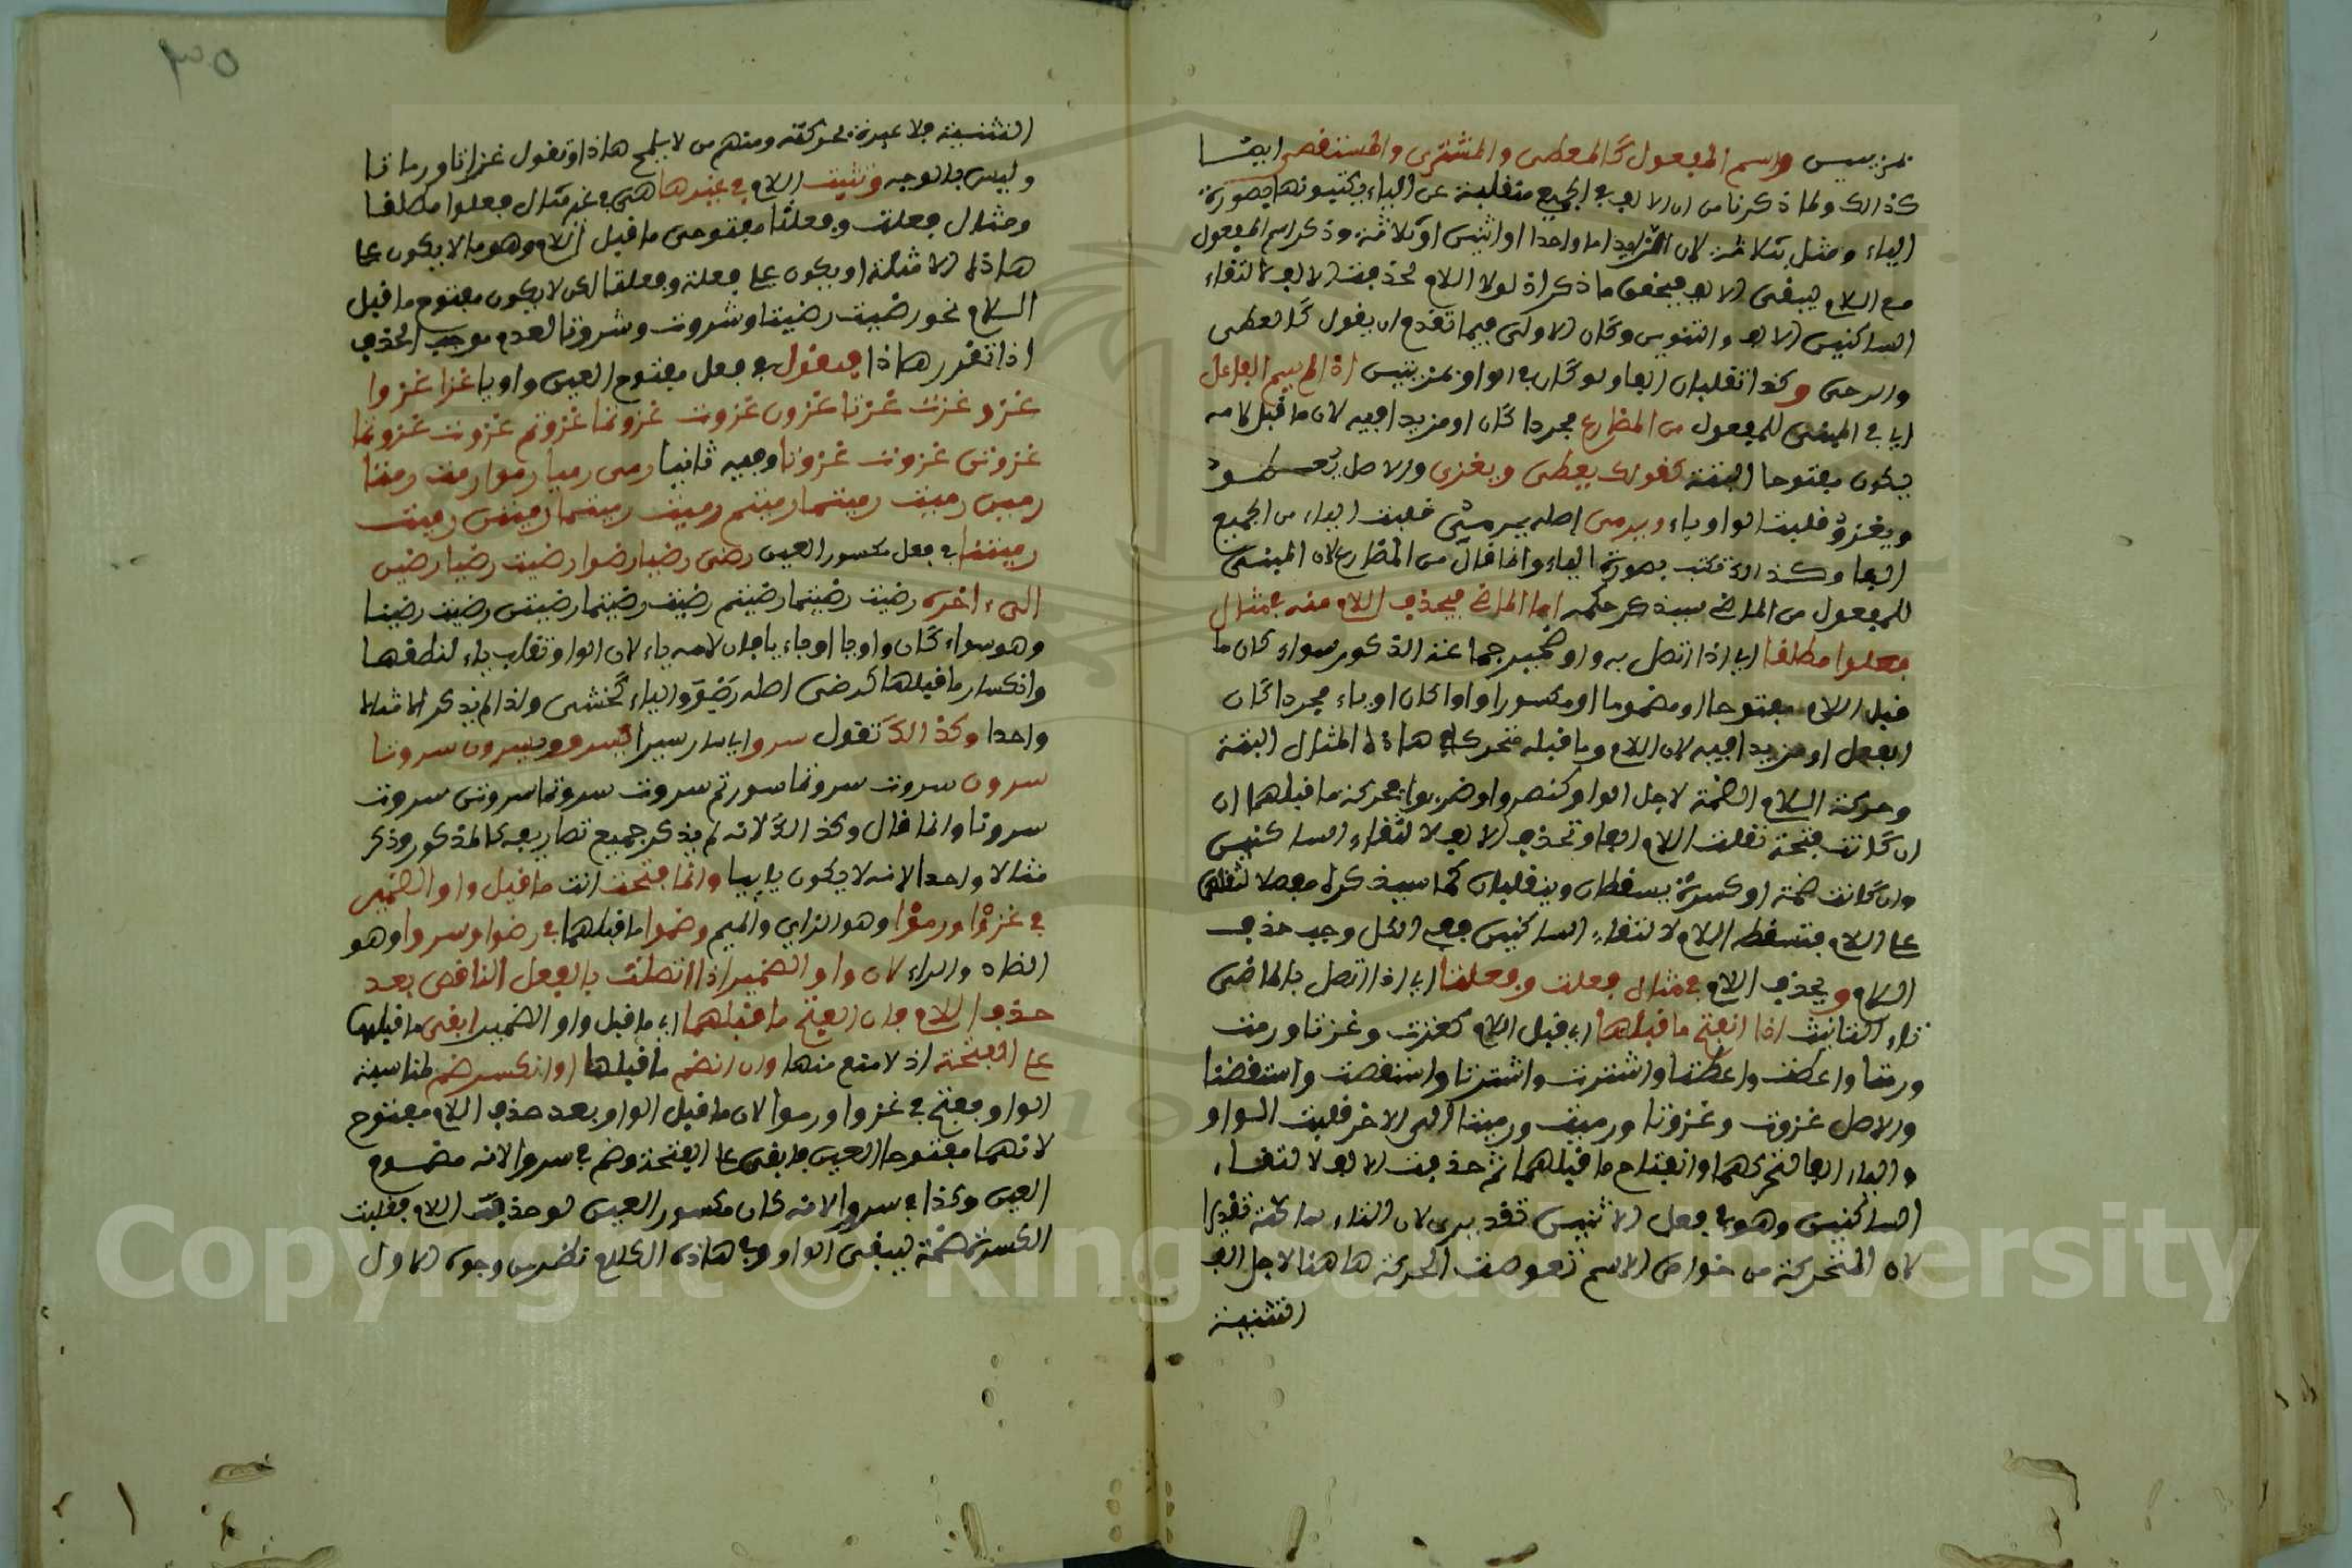 المزيدين واسم المفعول كالمعطى والمشترى والمستقصى ايضا
كذالك ولما ذكرنا من ان الالف في الجميع منقلبة عن الياء يكتبونها بصورة
الياء ومثل بثلاثة لان الزايد اما واحدا او اثنين او ثلاثة وذكر اسم المفعول
مع اللام ليبقى الالف فيتحقق ما ذكر اذ لولا اللام لحذفت الالف لالتقاء
الساكنين الالف والتنوين وكان الاولى فيما تقدم ان يقول كالعطى
والرحى وكذا تقلبان الفا ولو كان في الواو بمرتبتين اذا لم يسم الفاعل
اي في المبنى للمفعول من المضارع مجردا كان او مزيدا فيه لان ما قبل لامه
يكون مفتوحا البتة كقولك يعطى ويغزى والاصل يعطو
ويغزو قلبت الواو ياء ويرمى اصله يرمي قلبت الياء من الجميع
الفا وكذالك تكتب بصورة الياء وانما قال من المضارع لان المبنى
للمفعول من الماضي سيذكر حكمه اما الماضي فيحذف اللام منه في مثال
فعلوا مطلقا اي اذا اتصل به واو ضمير جماعة الذكور سواء كان ما
قبل اللام مفتوحا او مضموما او مكسورا واوا كان او ياء مجردا كان
الفعل او مزيدا فيه لان اللام وما قبله متحركان في هاذا المثال البتة
وحركة اللام الضمة لاجل الواو كنصروا وضربوا فحركة ما قبلهما ان
ان كانت فتحة تقلب اللام الفا وتحذف الالف لالتقاء الساكنين
وان كانت ضمة او كسرة يسقطان وينقلبان كما سيذكر مفصلا لثقلهما
على اللام فتسقط اللام لالتقاء الساكنين ففي الكل وجب حذف
اللام ويحذف اللام في مثال فعلت وفعلتا اي اذا اتصل بالماضى
تاء التانيث اذا انفتح ما قبلها اي قبل اللام كغزت وغزتا ورمت
ورمتا واعطت واعطتا واشترت واشترتا واستقصت واستقصتا
والاصل غزوت وغزوتا ورميت ورميتا الى الاخر قلبت الواو
والياء الفا لتحركهما وانفتاح ما قبلهما ثم حذفت الالف لالتقاء
الساكنين وهو في فعل الاثنين تقديرى لان التاء ساكنة تقديرا
لان المتحركة من خواص الاسم فعرضت الحركة هاهنا لاجل الف
التثنية
٣٥
التثنية فلا عبرة بحركته ومنهم من لا يلمح هاذا وتقول غزاتا ورماتا
وليس بالوجه وتثبت اللام في غيرها اى في غير مثال فعلوا مطلقا
ومثال فعلت وفعلتا مفتوحى ما قبل اللام وهو ما لا يكون على
هاذه الامثلة او يكون على فعلت وفعلتا لكن لا يكون مفتوح ما قبل
اللام نحو رضيت رضيتا وسروت وسروتا لعدم موجب الحذف
اذا تقرر هاذا فنقول في فعل مفتوح العين واويا غزا غزوا
غزو غزت غزتا غزون غزوت غزوتما غزوتم غزوت غزوتما
غزوتن غزوت غزونا وفيه ثانيا رمى رميا رموا رمت رمتا
رمين رميت رميتما رميتم رميت رميتما رميتن رميت
رمينا في فعل مكسور العين رضى رضيا رضوا رضيت رضيتا رضين
الى اخره رضيت رضيتما رضيتم رضيت رضيتما رضيتن رضيت رضينا
وهو سواء كان واويا او يائيا فان لامه ياء لان الواو تقلب ياء لتطرفها
وانكسار ما قبلها كرضى اصله رضو والياء كخشى ولذا لم يذكر الا مثالا
واحدا وكذالك تقول سرو اي سار سيرا سروو سروا سروت سروتا
سرون سروت سروتما سروتم سروت سروتما سروتن سروت
سرونا وانما قال وكذالك لانه لم يذكر جميع تصاريفه كالمذكور وذكر
مثالا واحدا لانه لا يكون يائيا وانما فتحت انت ما قبل واو الضمير
في غزوا ورموا وهو الزاي والميم وضموا ما قبلهما في رضوا وسروا وهو
الضاد والراء لان واو الضمير اذا اتصلت بالفعل الناقص بعد
حذف اللام فان انفتح ما قبلهما اي ما قبل واو الضمير ابقى ما قبلها
على الفتحة اذ لا مانع منها وان انضم ما قبلها او انكسر ضم لمناسبة
الواو ففتح في غزوا ورموا لان ما قبل الواو بعد حذف اللام مفتوح
لانهما مفتوحا العين فابقى على الفتحة وضم في سروا لانه مضموم
العين وكذا في سروا لانه كان مكسور العين لو حذفت اللام فقلبت
الكسرة ضمة ليبقى الواو وفى هاذه الكلام نظر من وجوه الاول